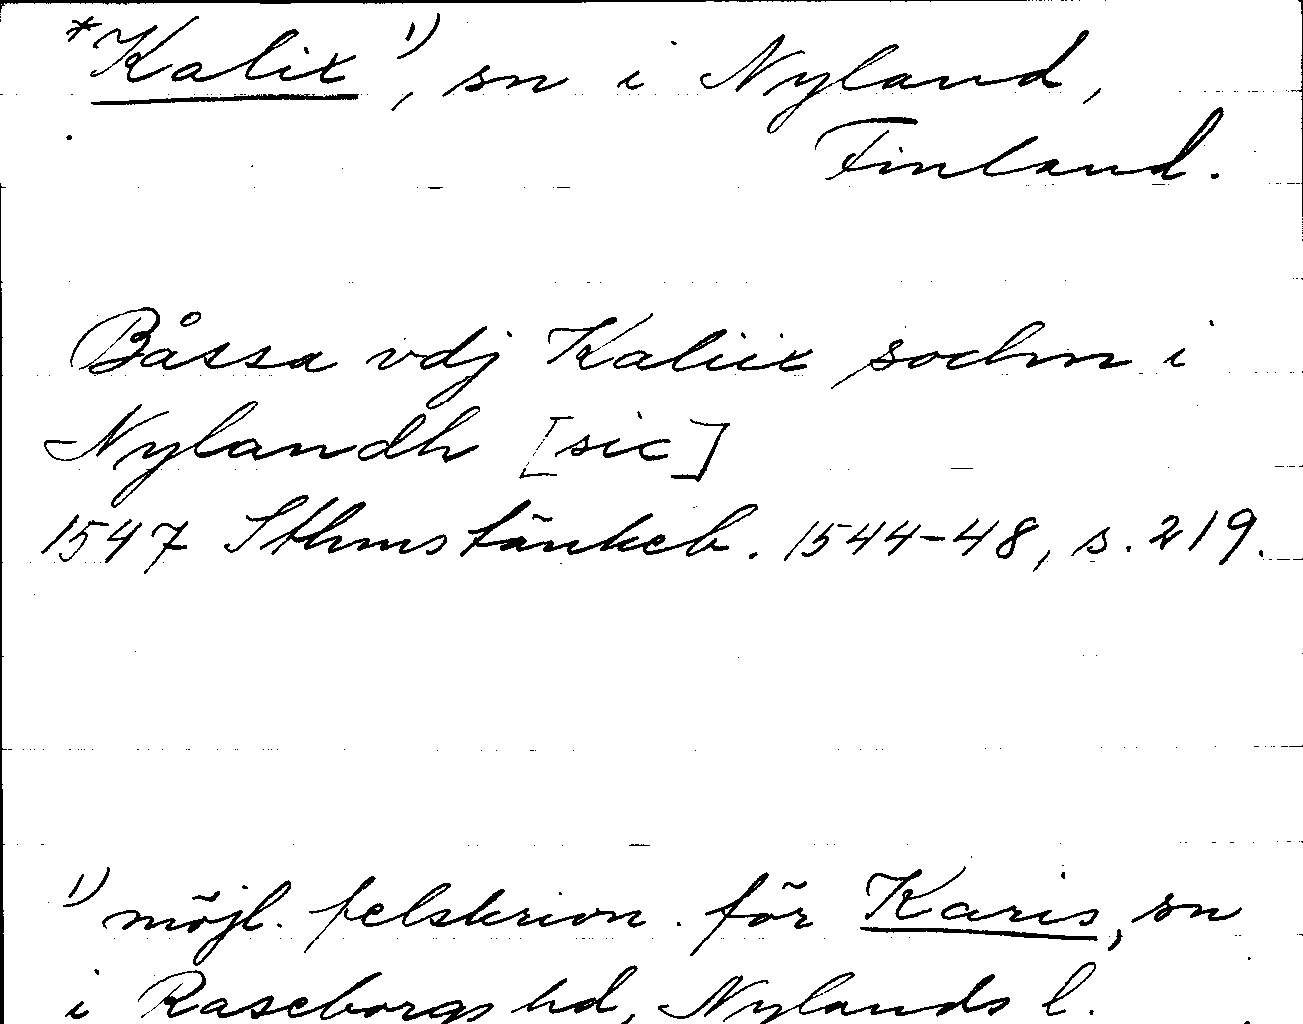 *Kalix ¹⁾, sn i Nyland,
Finland.
Båssa vdj Kaliix sochn i
Nylandh [sic]
1547 Sthms tänkeb. 1544-48, s. 219.
¹⁾ möjl. felskrivn. för Karis, sn
i Raseborgs hd, Nylands l.